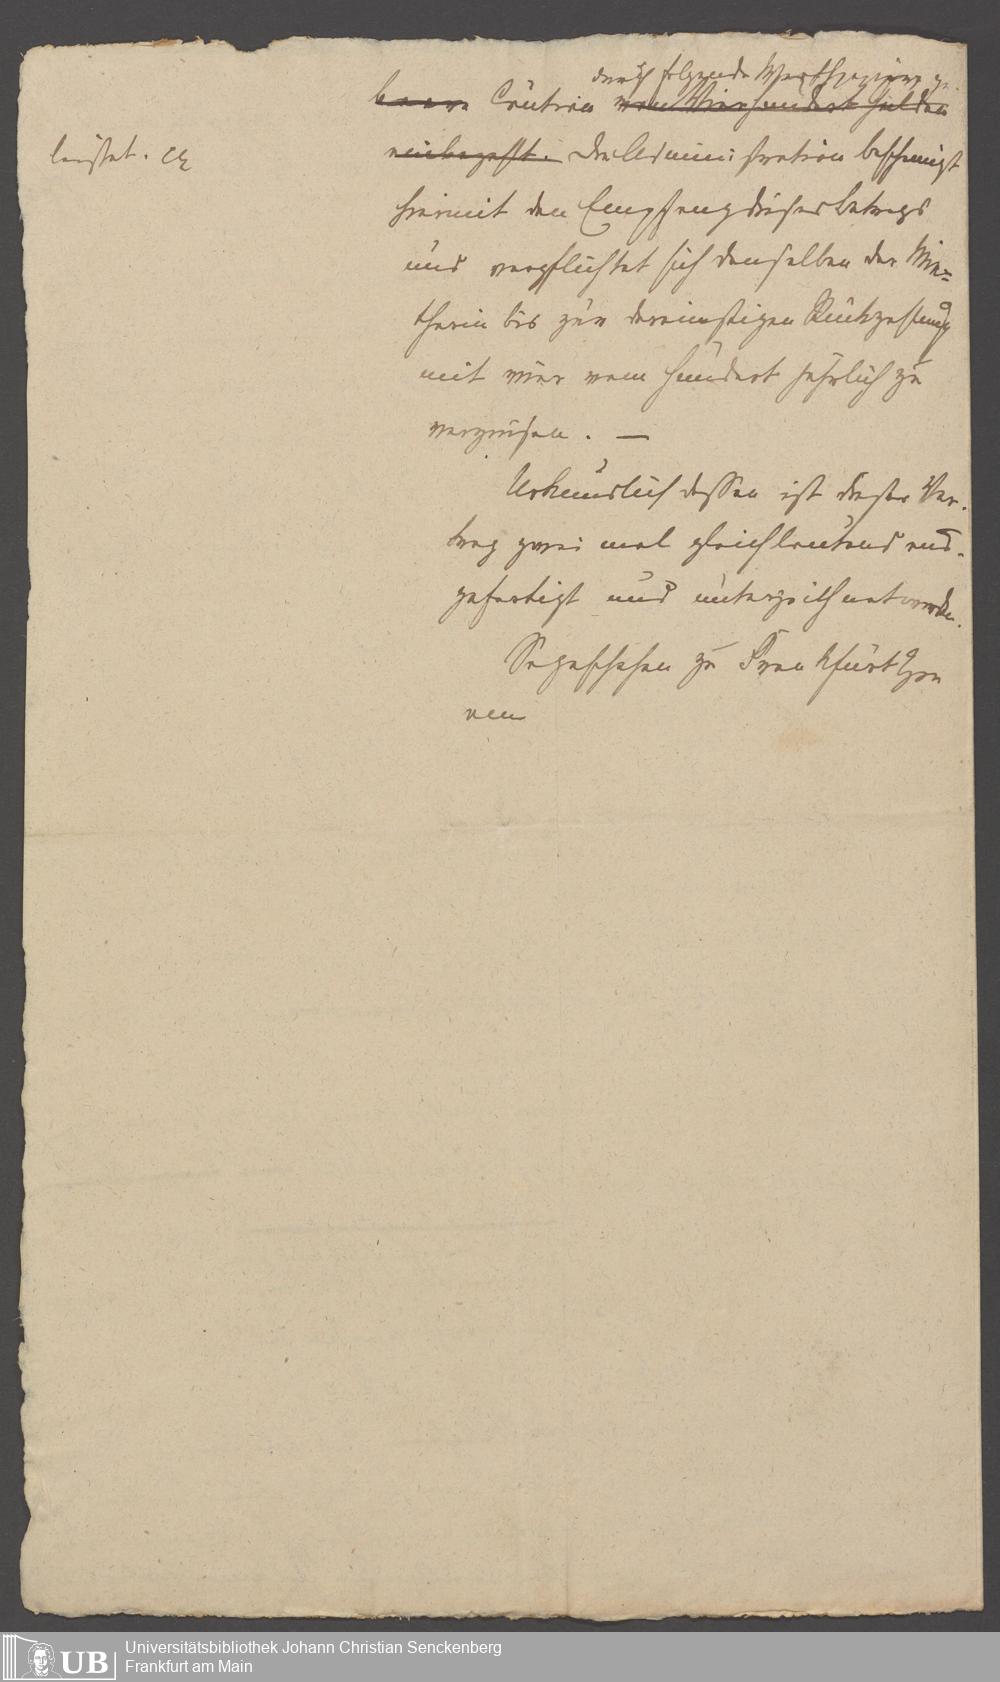 durch folgende Werthpapiere ge-
baare Caution von Vierhundert Gulden
leistet.
einbezahlt. Die Administration bescheinigt
hiermit den Empfang dieses Betrags
und verpflichtet sich denselben der Mie=
therin bis zur dereinstigen Rückzahlung
mit vier vom Hundert jährlich zu
verzinsen. —
Urkundlich dessen ist dieser Ver-
trag zwei mal gleichlautend aus-
gefertigt und unterzeichnet worden.
So geschehen zu Frankfurt
am
UB Universitätsbibliothek Johann Christian Senckenberg
Frankfurt am Main